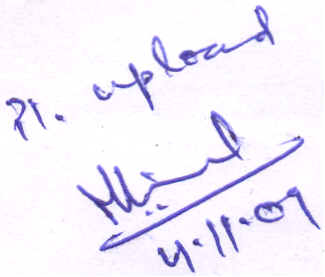 Pl. upload
4.11.09